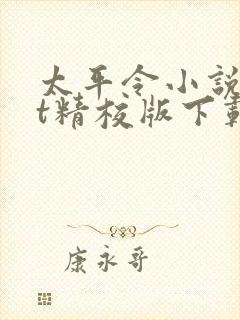 太平令小說
t精校版下載
康永哥